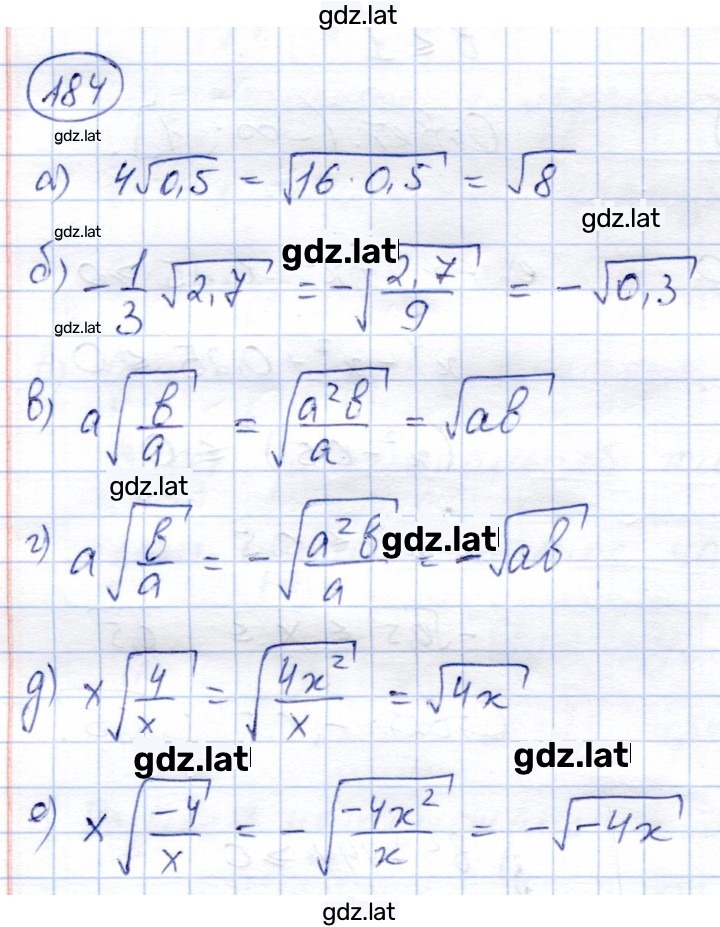 gdz.lat
184
gdz.lat
а) 4√0,5 = √16·0,5 = √8
gdz.lat
gdz.lat
gdz.lat
б) -1/3 √2,7 = -√(2,7/9) = -√0,3
gdz.lat
в) a√(b/a) = √(a²b/a) = √ab
gdz.lat
г) a√(b/a) = -√(a²b/a) = -√ab
gdz.lat
д) x√(4/x) = √(4x²/x) = √4x
gdz.lat
gdz.lat
е) x√(-4/x) = -√(-4x²/x) = -√-4x
gdz.lat